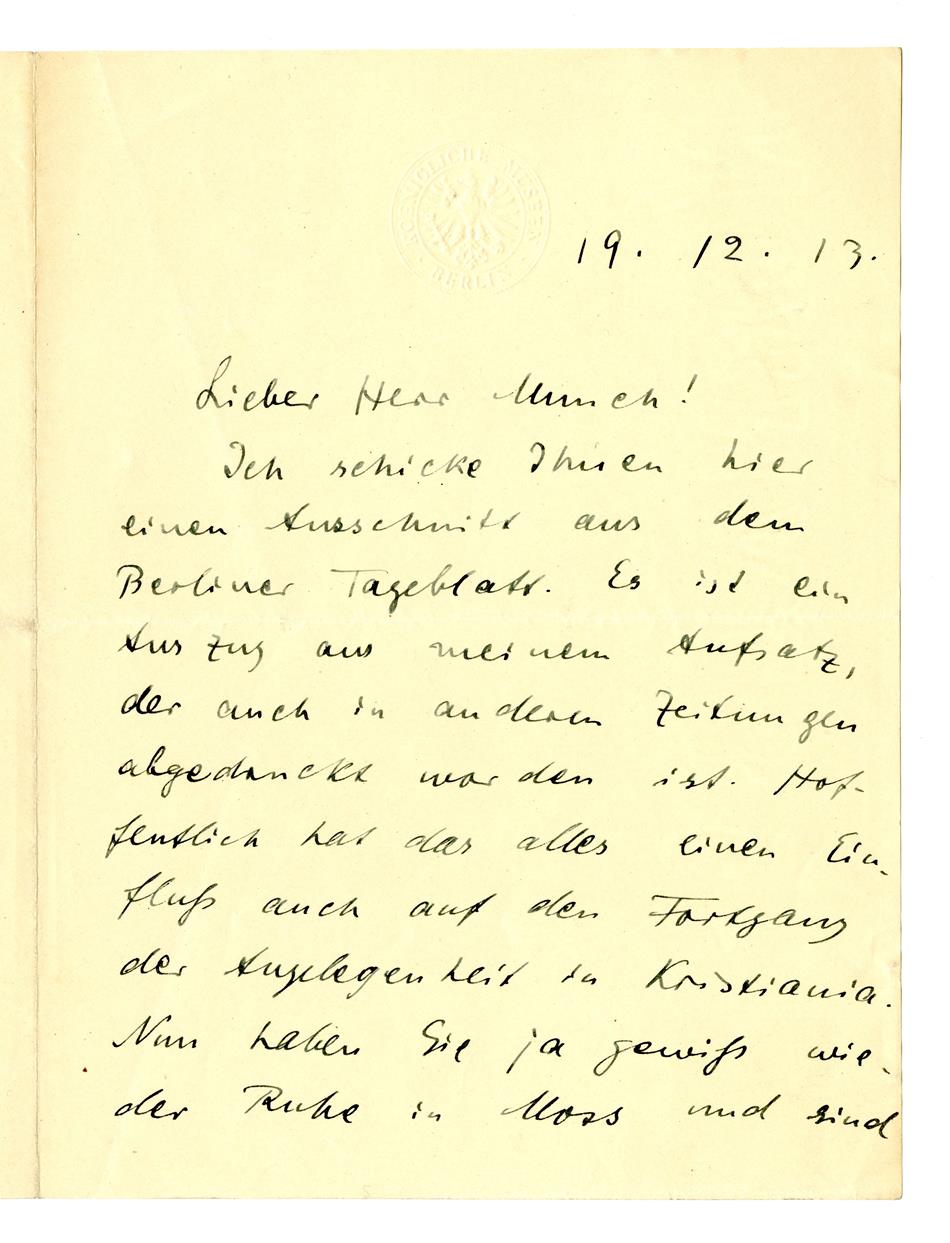 KOENIGLICHE MUSEEN
BERLIN
19. 12. 13.
Lieber Herr Munch!
Ich schicke Ihnen hier
einen Ausschnitt aus dem
Berliner Tageblatt. Es ist ein
Auszug aus meinem Aufsatz,
der auch in anderen Zeitungen
abgedruckt worden ist. Hof-
fentlich hat das alles einen Ein-
fluß auch auf den Fortgang
der Angelegenheit in Kristiania.
Nun haben Sie ja gewiß wie-
der Ruhe in Moss und sind